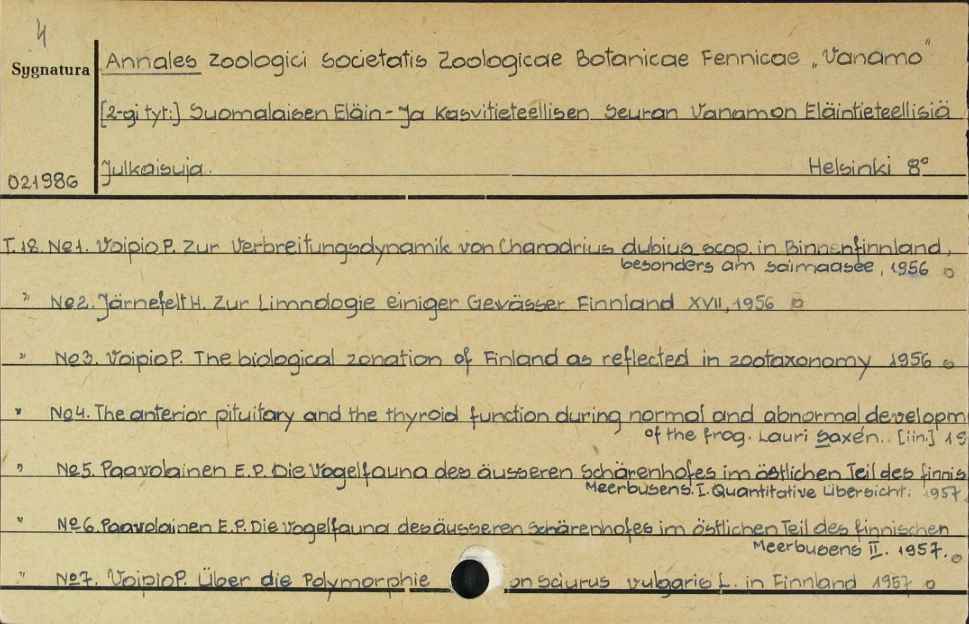 4
Sygnatura
Annales Zoologici Societatis Zoologicae Botanicae Fennicae „Vanamo“
[2-gi tyt:] Suomalaisen Eläin-Ja Kasvitieteellisen Seuran Vanamon Eläintieteellisiä
021986
Julkaisuja. Helsinki 8°
T.18. №1. Voipio P. Zur Verbreitungsdynamik von Charadrius dubius scop. in Binnenfinnland,
besonders am Saimaasee, 1956
" №2. Järnefelt H. Zur Limnologie einiger Gewässer Finnland XVII, 1956
" №3. Voipio P. The biological zonation of Finland as reflected in zootaxonomy 1956
" №4. The anterior pituitary and the thyroid function during normal and abnormal developm
of the frog. Lauri Saxén.. [iin.] 19
" №5. Paavolainen E.P. Die Vogelfauna des äusseren Schärenhofes im östlichen Teil des finnis
Meerbusens. I. Quantitative Übersicht. 1957.
" №6. Paavolainen E.P. Die Vogelfauna des äusseren Schärenhofes im östlichen Teil des finnischen
Meerbusens II. 1957.
" №7. Voipio P. Über die Polymorphie on Sciurus vulgaris L. in Finnland 1957